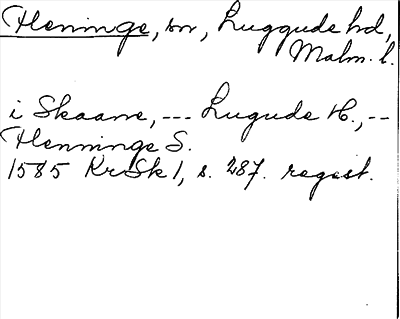 Heninge, sn, Luggude hd,
Malm. l.
i Skaane, --- Lugude H., --
Henninge S.
1585 KrSk 1, s. 287. regest.